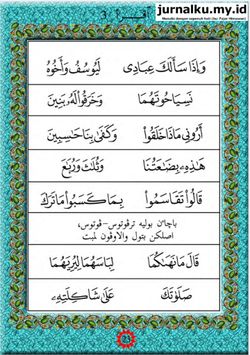 jurnalku.my.id
Menulis dengan sepenuh hati (by: Fajar Himawan)
اقرأ 3
وَإِذَا سَأَلَكَ عِبَادِى لَيُوسُفُ وَأَخُوهُ
نَسِيَا حُوتَهُمَا وَخَرَقُوا لَهُ بَنِينَ
أَرُونِى مَاذَا خَلَقُوا وَكَفَى بِنَا حَاسِبِينَ
هَذِهِ بِضَاعَتُنَا وَثُلَاثَ وَرُبَاعَ
قَالُوا تَقَاسَمُوا بِمَا كَسَبُوا مَا تَرَكَ
باچاٴن بوليه ترڤوتوس-ڤوتوس،
اصلكن بتول والاوڤون لمبت
قَالَ مَا نَهَاكُمَا لِبَاسَهُمَا لِيُرِيَهُمَا
صَلَوٰتَكَ عَلَىٰ شَاكِلَتِهِ
23